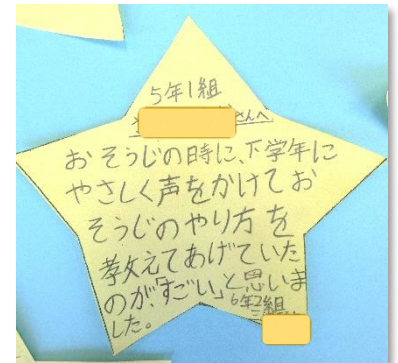 5年1組
さんへ
おそうじの時に、下学年に
やさしく声をかけてお
そうじのやり方を
教えてあげていた
のが、「すごい」と思いま
した。
6年2組